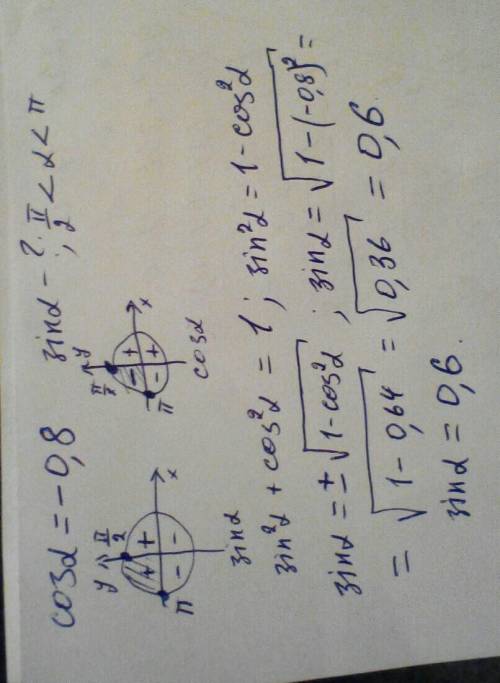 cosα = −0,8   sinα − ?; π/2 < α < π
y π/2 + + − − π x sinα
y π/2 − + − + π x cosα
sin²α + cos²α = 1; sin²α = 1 − cos²α
sinα = ±√(1−cos²α); sinα = √(1−(−0,8)²) =
= √(1−0,64) = √(0,36) = 0,6
sinα = 0,6.